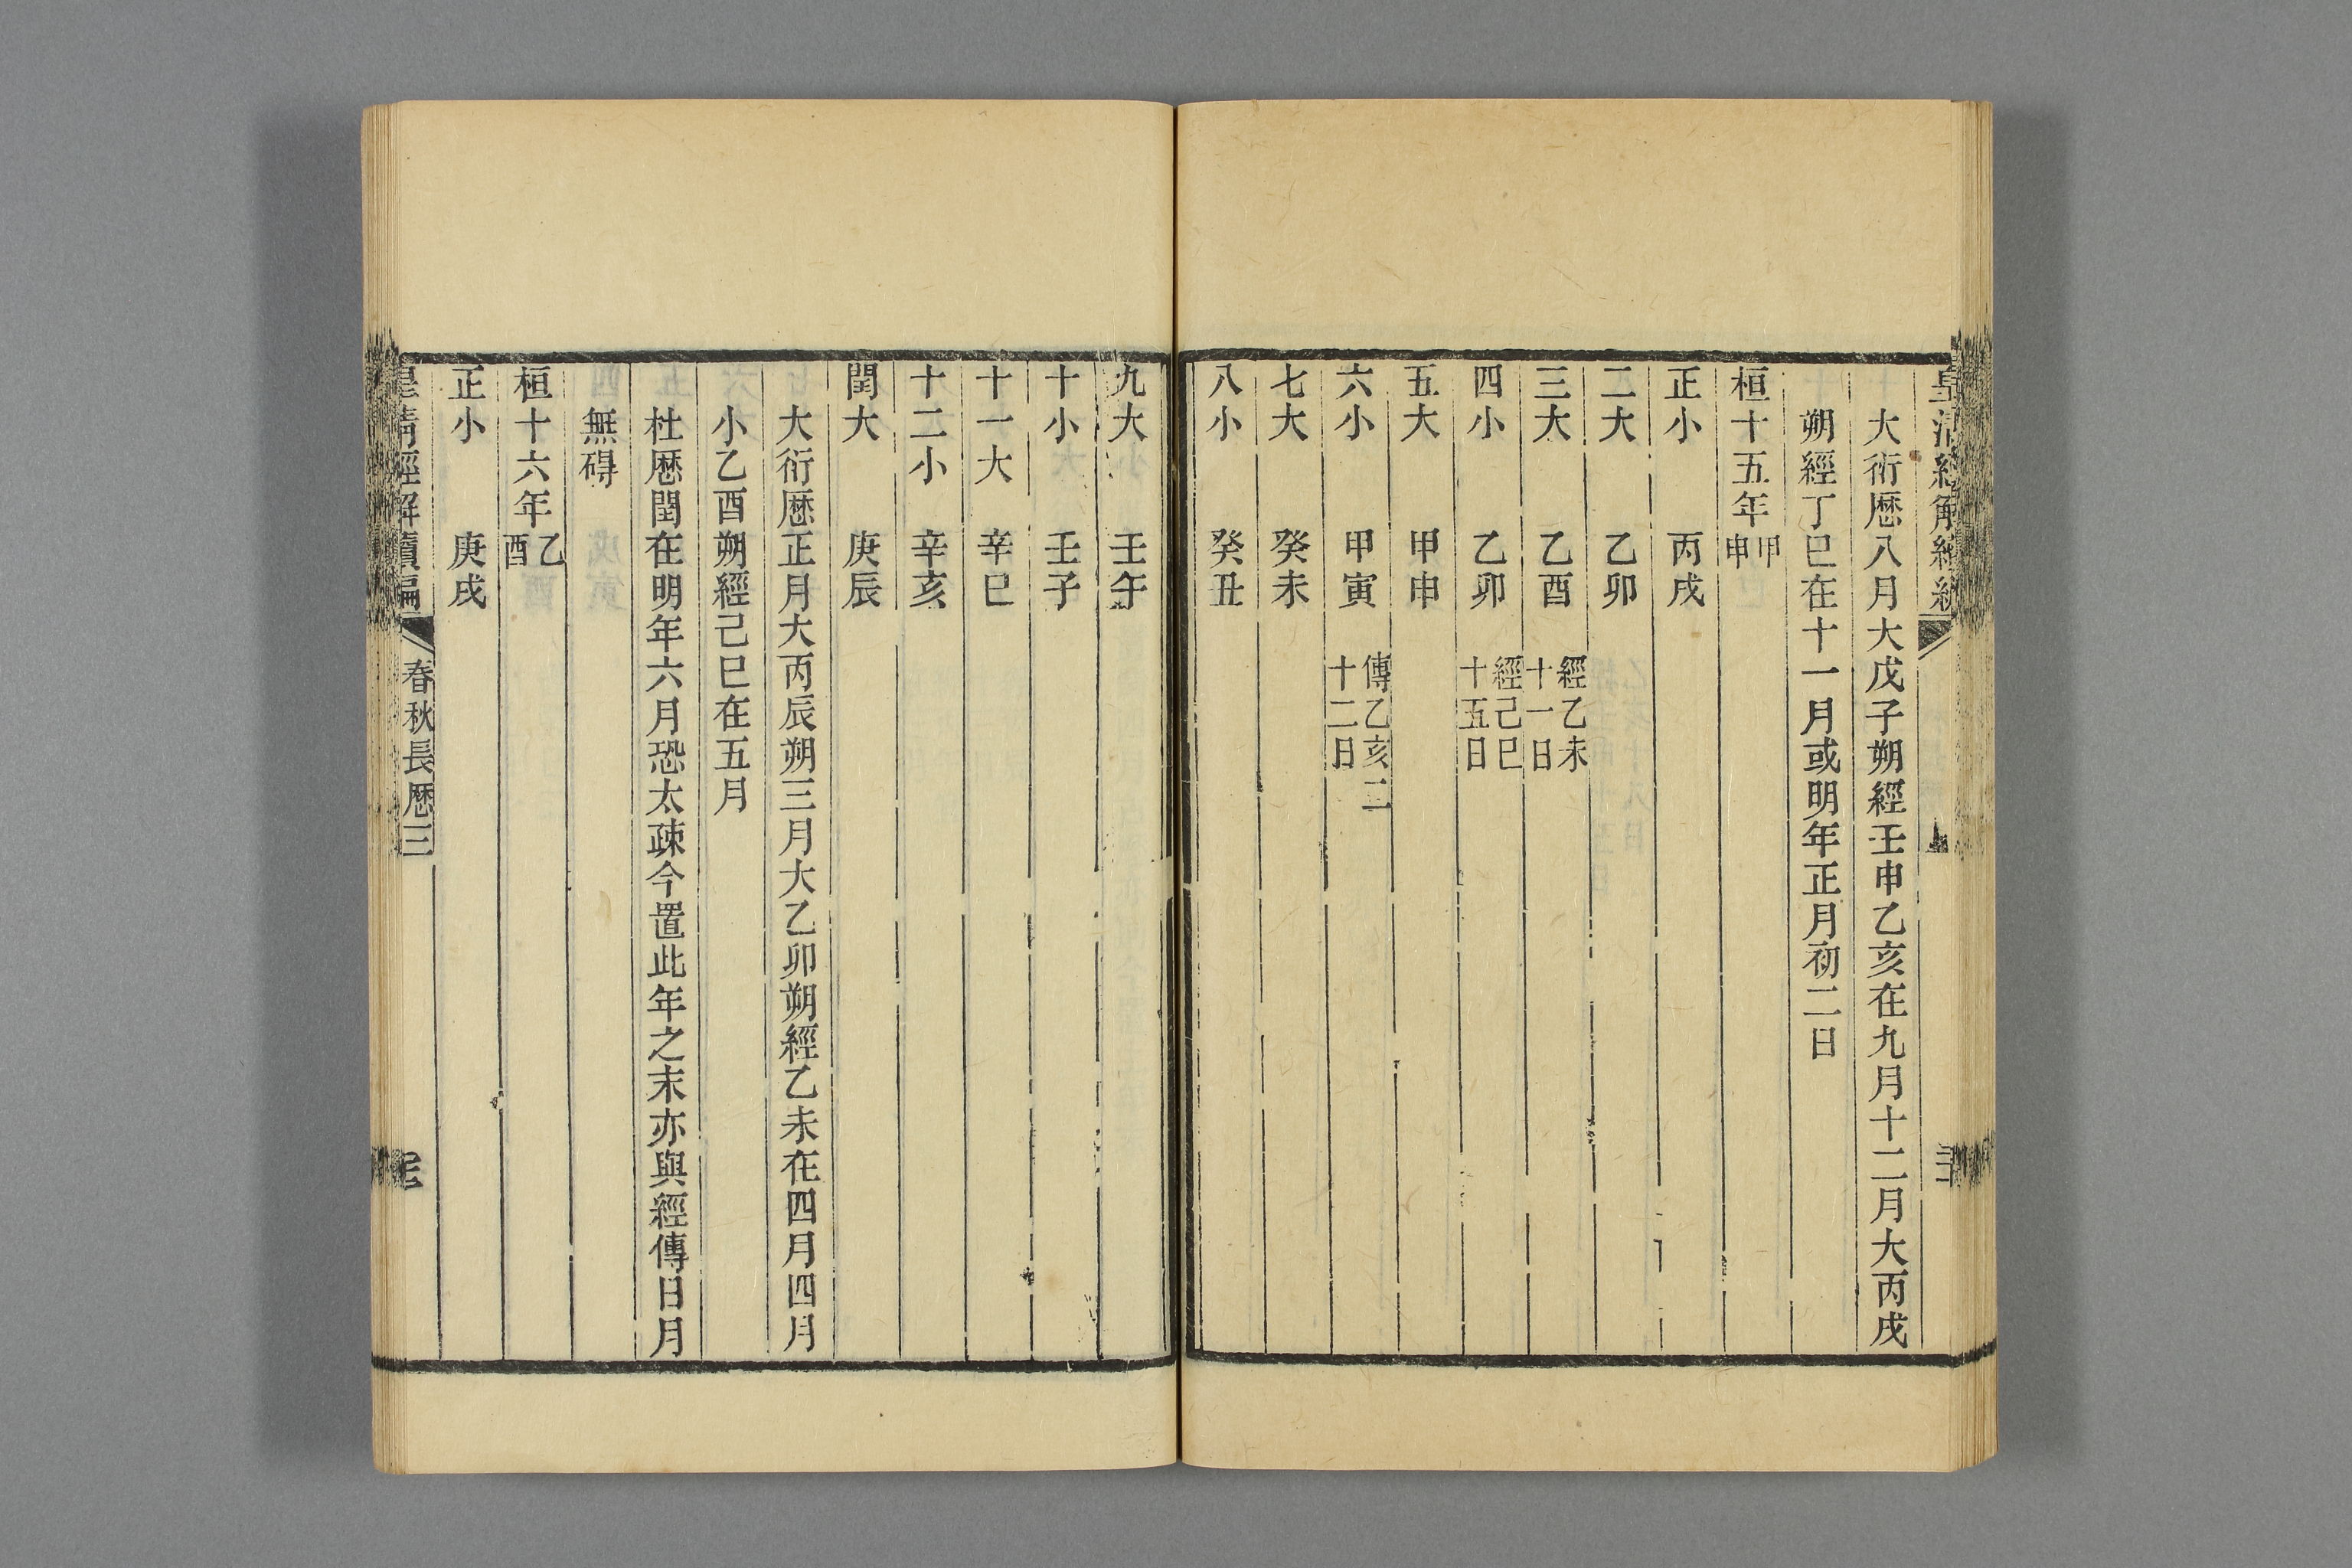 大衍厯八月大戊子朔經壬申乙亥在九月十二月大丙戌
朔經丁巳在十一月或明年正月初二日
桓十五年甲申
正小　丙戌
二大　乙卯
三大　乙酉　經乙未十一日
四小　乙卯　經己巳十五日
五大　甲申
六小　甲寅　傳乙亥二十二日
七大　癸未
八小　癸丑
九大　壬午
十小　壬子
十一大　辛巳
十二小　辛亥
閏大　庚辰
大衍厯正月大丙辰朔三月大乙卯朔經乙未在四月四月
小乙酉朔經己巳在五月
杜厯閏在明年六月恐太疎今置此年之末亦與經傳日月
無碍
桓十六年乙酉
正小　庚戌
皇清經解續編
春秋長厯三